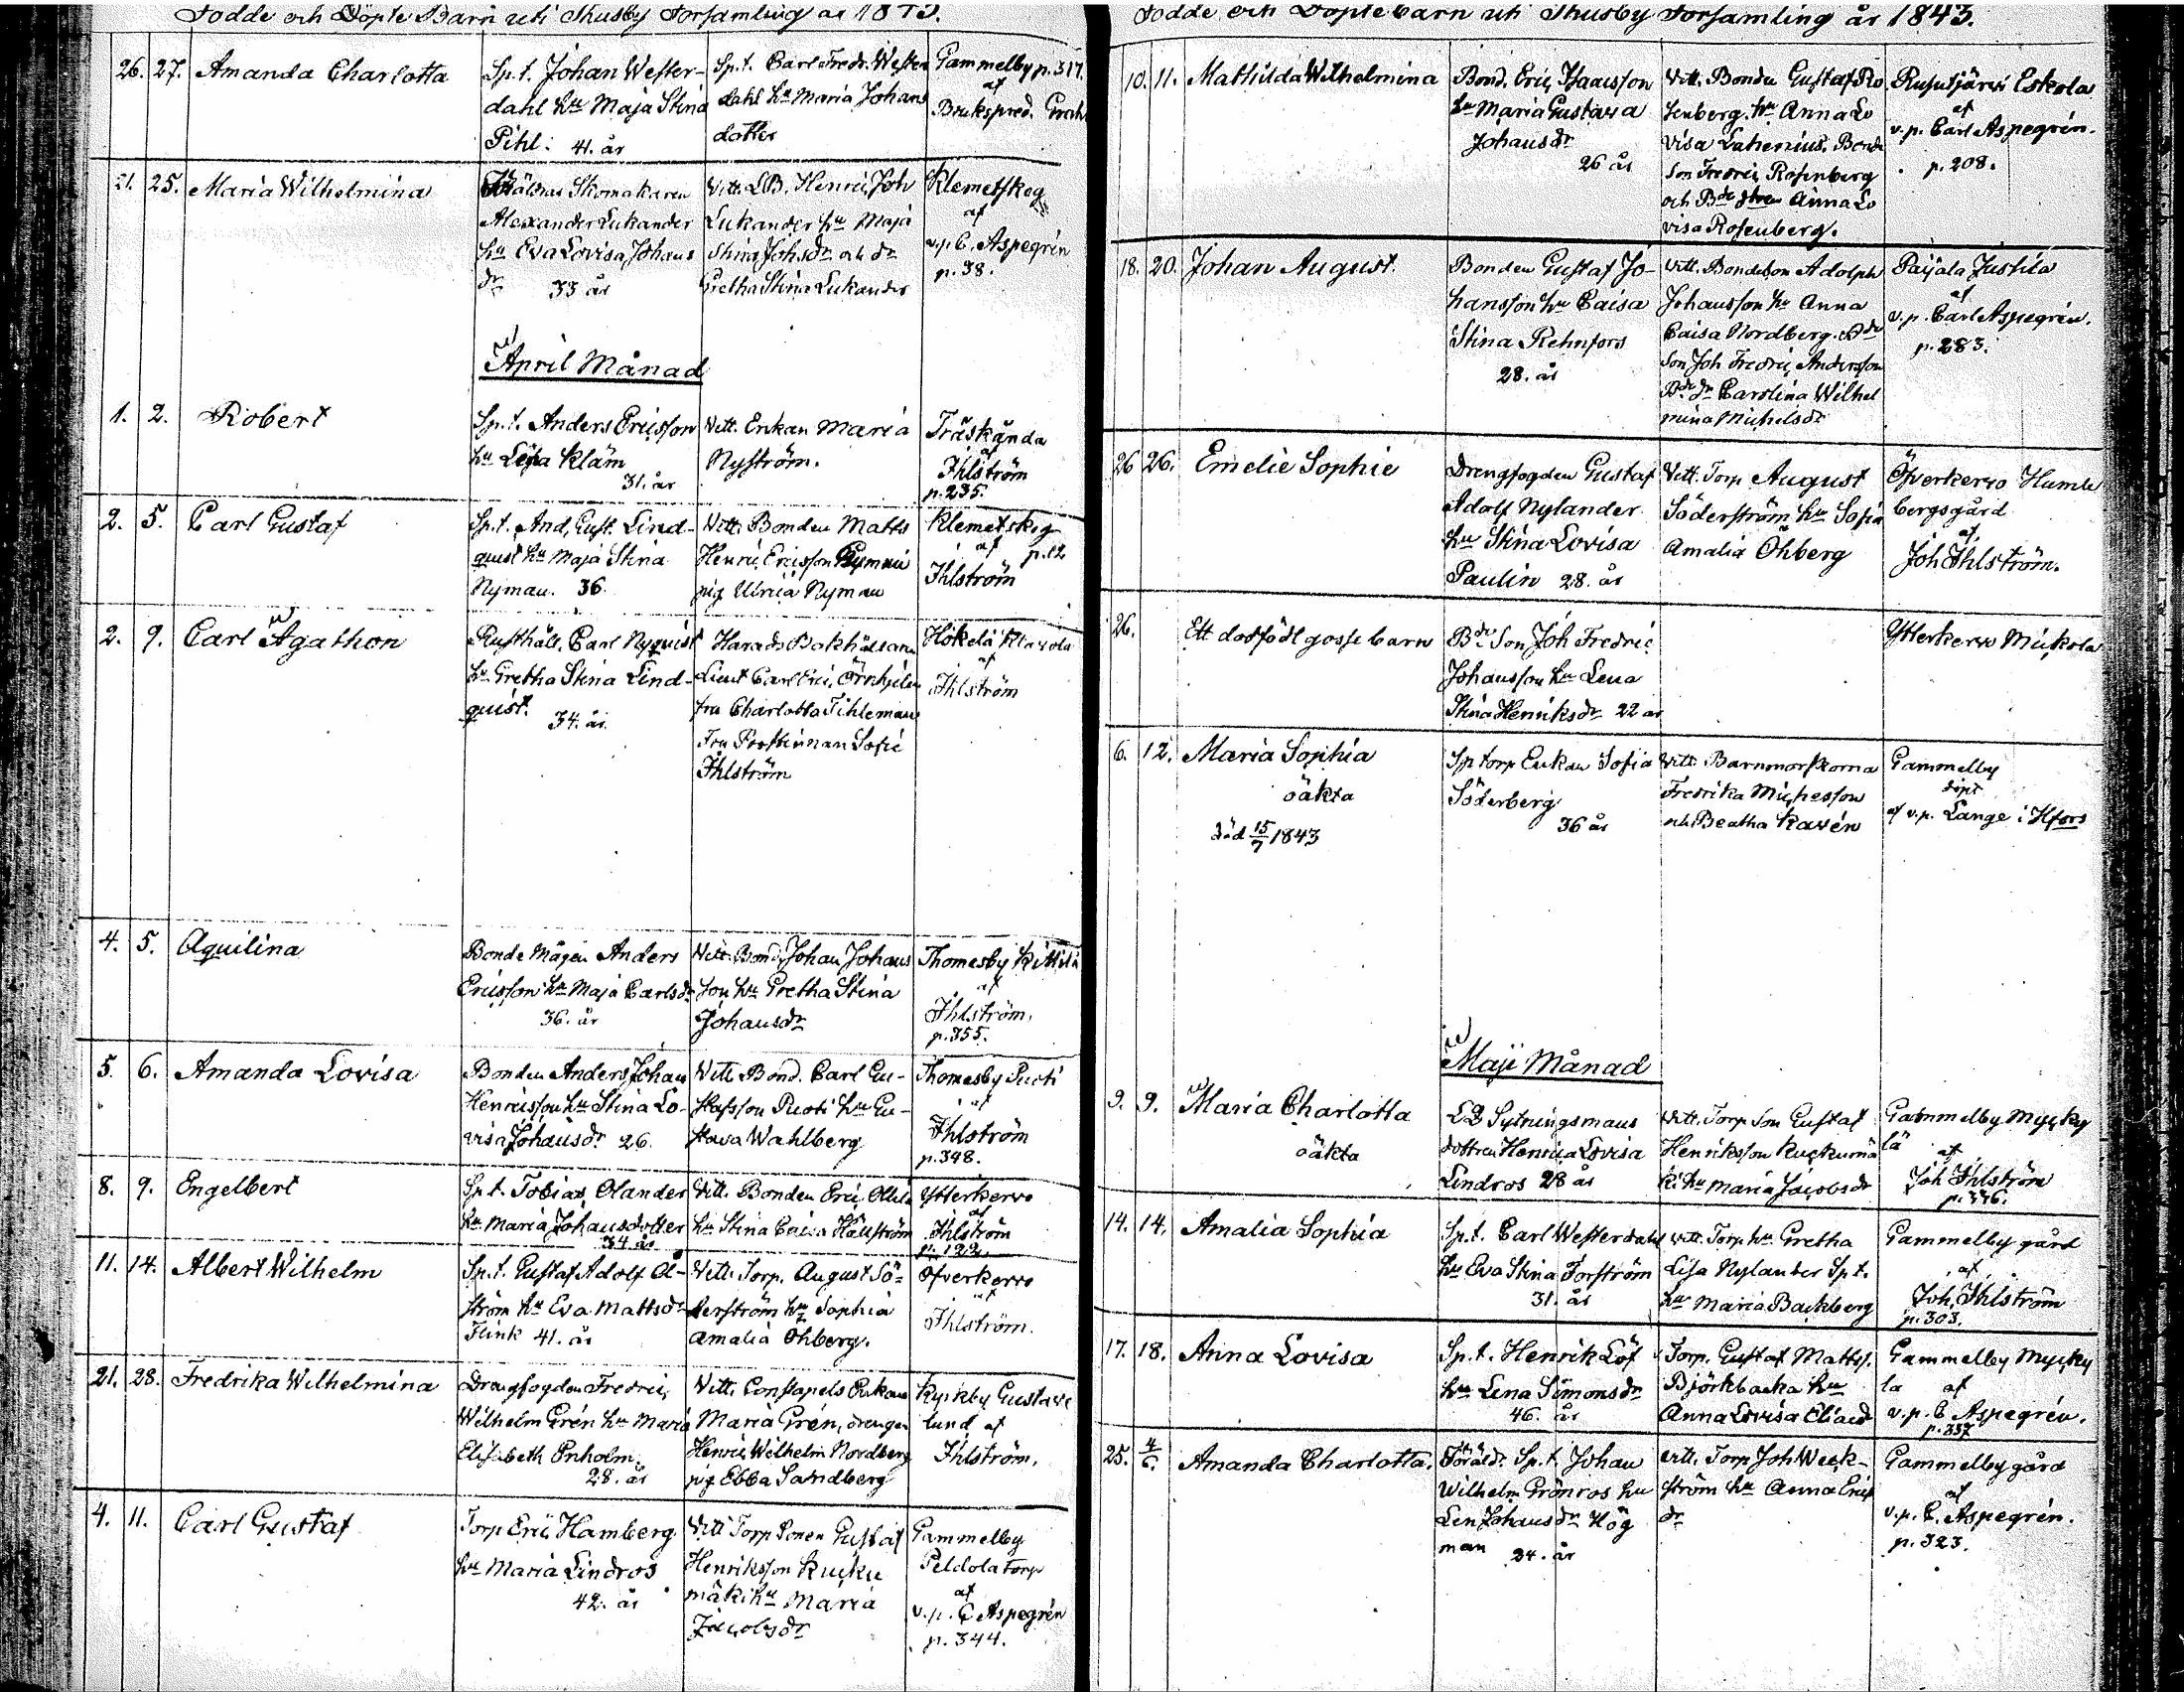 Födde och Döpte Barn uti Thusby Församling år 1843.
26. 27. Amanda Charlotta
Sp.t. Johan Wester-
dahl hu Maja Stina
Pihl. 41. år
Sp.t. Carl Fredr. Wester
dahl hu Maria Johans
dotter
Gammelby p. 317.
af
Brukspred.
21. 25. Maria Wilhelmina
Skomakaren
Alexander Lukander
hu Eva Lovisa Johans
dr 33 år
Vitt. LB. Henric Joh
Lukander hu Maja
Stina Johsdr och dr
Gretha Stina Lukander
Klemetskog
af
v.p. C. Aspegrén
p. 38.
April Månad
1. 2. Robert
Sp.t. Anders Ericsson
hu Lisa Kläm
31. år
Vitt. Enkan Maria
Nyström.
Träskända
af
Ihlström
p. 235.
2. 5. Carl Gustaf
Sp.t. And. Gust. Lind-
quist hu Maja Stina
Nyman. 36.
Vitt. Bonden Matts
Henric Ericsson
pig Ulrica Nyman
Klemetskog
af p. 12
Ihlström
2. 9. Carl Agathon
Rusthåll. Carl Nyquist
hu Gretha Stina Lind-
quist. 34. år
Harads Bokhållaren
Lieut Carl Eric Örnhjelm
fru Charlotta Tihleman
Fru Prostinnan Sofie
Ihlström
Hökelä Klavola
af
Ihlström
4. 5. Aquilina
Bonde Mågen Anders
Ericsson hu Maja Carlsdr
36. år
Vitt. Bond. Johan Johans
son hu Gretha Stina
Johansdr
Thomesby Kittilä
af
Ihlström.
p. 355.
5. 6. Amanda Lovisa
Bonden Anders Johan
Henricsson hu Stina Lo-
visa Johansdr 26.
Vitt. Bond. Carl Gu-
stafsson Puoti hu Gu-
stava Wahlberg
Thomesby Puoti
af
Ihlström
p. 348.
8. 9. Engelbert
Sp.t. Tobias Olander
hu Maria Johansdotter
34 år
Vitt. Bonden Eric Ollila
hu Stina Caisa Hällström
Ytterkervo
af
Ihlström
p. 122.
11. 14. Albert Wilhelm
Sp.t. Gustaf Adolf Ol-
ström hu Eva Mattsdr
Flink 41. år
Vitt. Torp. August Sö-
derström hu Sophia
Amalia Öhberg.
Öfverkervo
af
Ihlström.
21. 28. Fredrika Wilhelmina
Drengfogden Fredric
Wilhelm Grén hu Maria
Elisabeth Enholm.
28. år
Vitt. Constapels Enkan
Maria Grén, drengen
Henric Wilhelm Nordberg
pig Ebba Sandberg
Kyrkby Gustavs
lund af
Ihlström.
4. 11. Carl Gustaf
Torp Eric Hamberg
hu Maria Lindros
42. år
Vitt Torp Sonen Gustaf
Henriksson Kucku
mäki hu Maria
Jacobsdr
Gammelby
Peldola torp
af
v.p. C Aspegrén
p. 344.
Födde och Döpte barn uti Thusby Församling år 1843.
10. 11. Mathilda Wilhelmina
Bond. Eric Isaacsson
hu Maria Gustava
Johansdr
26 år
Vitt. Bonden Gustaf Ro
senberg. hu Anna Lo
visa Bonde
son Fredric Rosenberg
och Anna Lo
visa Rosenberg.
Rusutjärvi Eskola
af
v.p. Carl Aspegrén.
p. 208.
18. 20. Johan August.
Bonden Gustaf Jo-
hansson hu Caisa
Stina Rehnfors
28. år
Vitt. Bondeson Adolph
Johansson hu Anna
Caisa Nordberg. Bde
Son Joh Fredric Andersson
Bde dr Carolina Wilhel
mina Michelsdr
Paijala Justila
af
v.p. Carl Aspegrén.
p. 283.
26 26. Emelie Sophie
Drengfogden Gustaf
Adolf Nylander
hu Stina Lovisa
Paulin 28. år
Vitt. Torp August
Söderström hu Sofia
Amalia Öhberg
Öfverkervo Humle
bergsgård
af
Joh Ihlström.
26. Ett dödfödt gosse barn
Bde Son Joh Fredric
Johansson hu Lena
Stina Henriksdr 22 år
Ytterkervo Mickola
6. 12. Maria Sophia
oäkta
död 15/7 1843
Sp torp Enkan Sofia
Söderberg
36 år
Vitt. Barnmorskorna
Fredrika Michesson
och Beatha Kavén
Gammelby
döpt
af v.p. Lange i Hfors
Maji Månad
9. 9. Maria Charlotta
oäkta
LB Sytningsmans
dottren Henrica Lovisa
Lindros 28 år
Vitt. Torp Son Gustaf
Henriksson Kuckumä
ki hu Maria Jacobsdr
Gammelby Mycky
lä af
Joh Ihlström
p. 336.
14. 14. Amalia Sophia
Sp.t. Carl Westerdahl
hu Eva Stina Forström
31. år
Vitt. Torp hu Gretha
Lisa Nylander Sp.t.
hu Maria Backberg
Gammelby gård
af
Joh. Ihlström
p. 303.
17. 18. Anna Lovisa
Sp.t. Henrik Löf
hu Lena Simonsdr
46. år
Torp. Gustaf Mattss.
Björkbacka hu
Anna Lovisa Eliaedr
Gammelby Mycky
la af
v.p. C Aspegrén.
p. 337
25. 4/6. Amanda Charlotta.
Föräld. Sp.t. Johan
Wilhelm Grönros hu
Len Johansdr Hög
man 24. år
Vitt. Torp Joh Week-
ström hu Anna Erics
dr
Gammelby gård
af
v.p. C. Aspegrén.
p. 323.